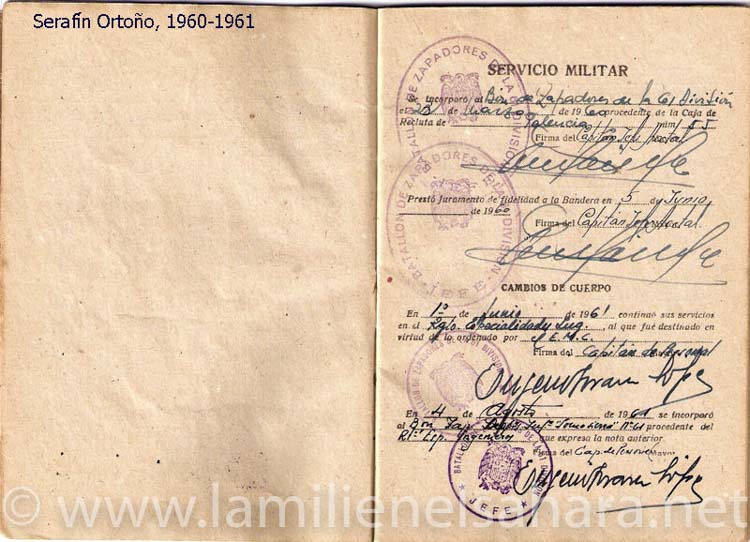 Serafín Ortoño, 1960-1961
SERVICIO MILITAR
Se incorporó al Bon de Zapadores de la 61 División
el 23 de Marzo de 1960 procedente de la Caja de
Recluta de Palencia núm.
Firma del Capitán
Prestó Juramento de fidelidad a la Bandera en 5 de Junio
de 1960
Firma del Capitán
CAMBIOS DE CUERPO
En 1º de Junio de 1961 continuó sus servicios
en el Rgto. Especialidades Ing., al que fué destinado en
virtud de lo ordenado por E.M.C.
Firma del Capitán de Personal
En 4 de Agosto de 1961 se incorporó
al Bon. Zap. Nº 61 procedente del
Rtº Esp. Ingenieros que expresa la nota anterior.
Firma del Cap. de Personal Mayor
BATALLON DE ZAPADORES DE LA DIVISION
JEFE
BATALLON DE ZAPADORES DE LA DIVISION
JEFE
© www.lamilienelsahara.net